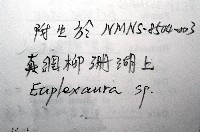 附生於 NMNS-8504-003
真網柳珊瑚上
Euplexaura sp.